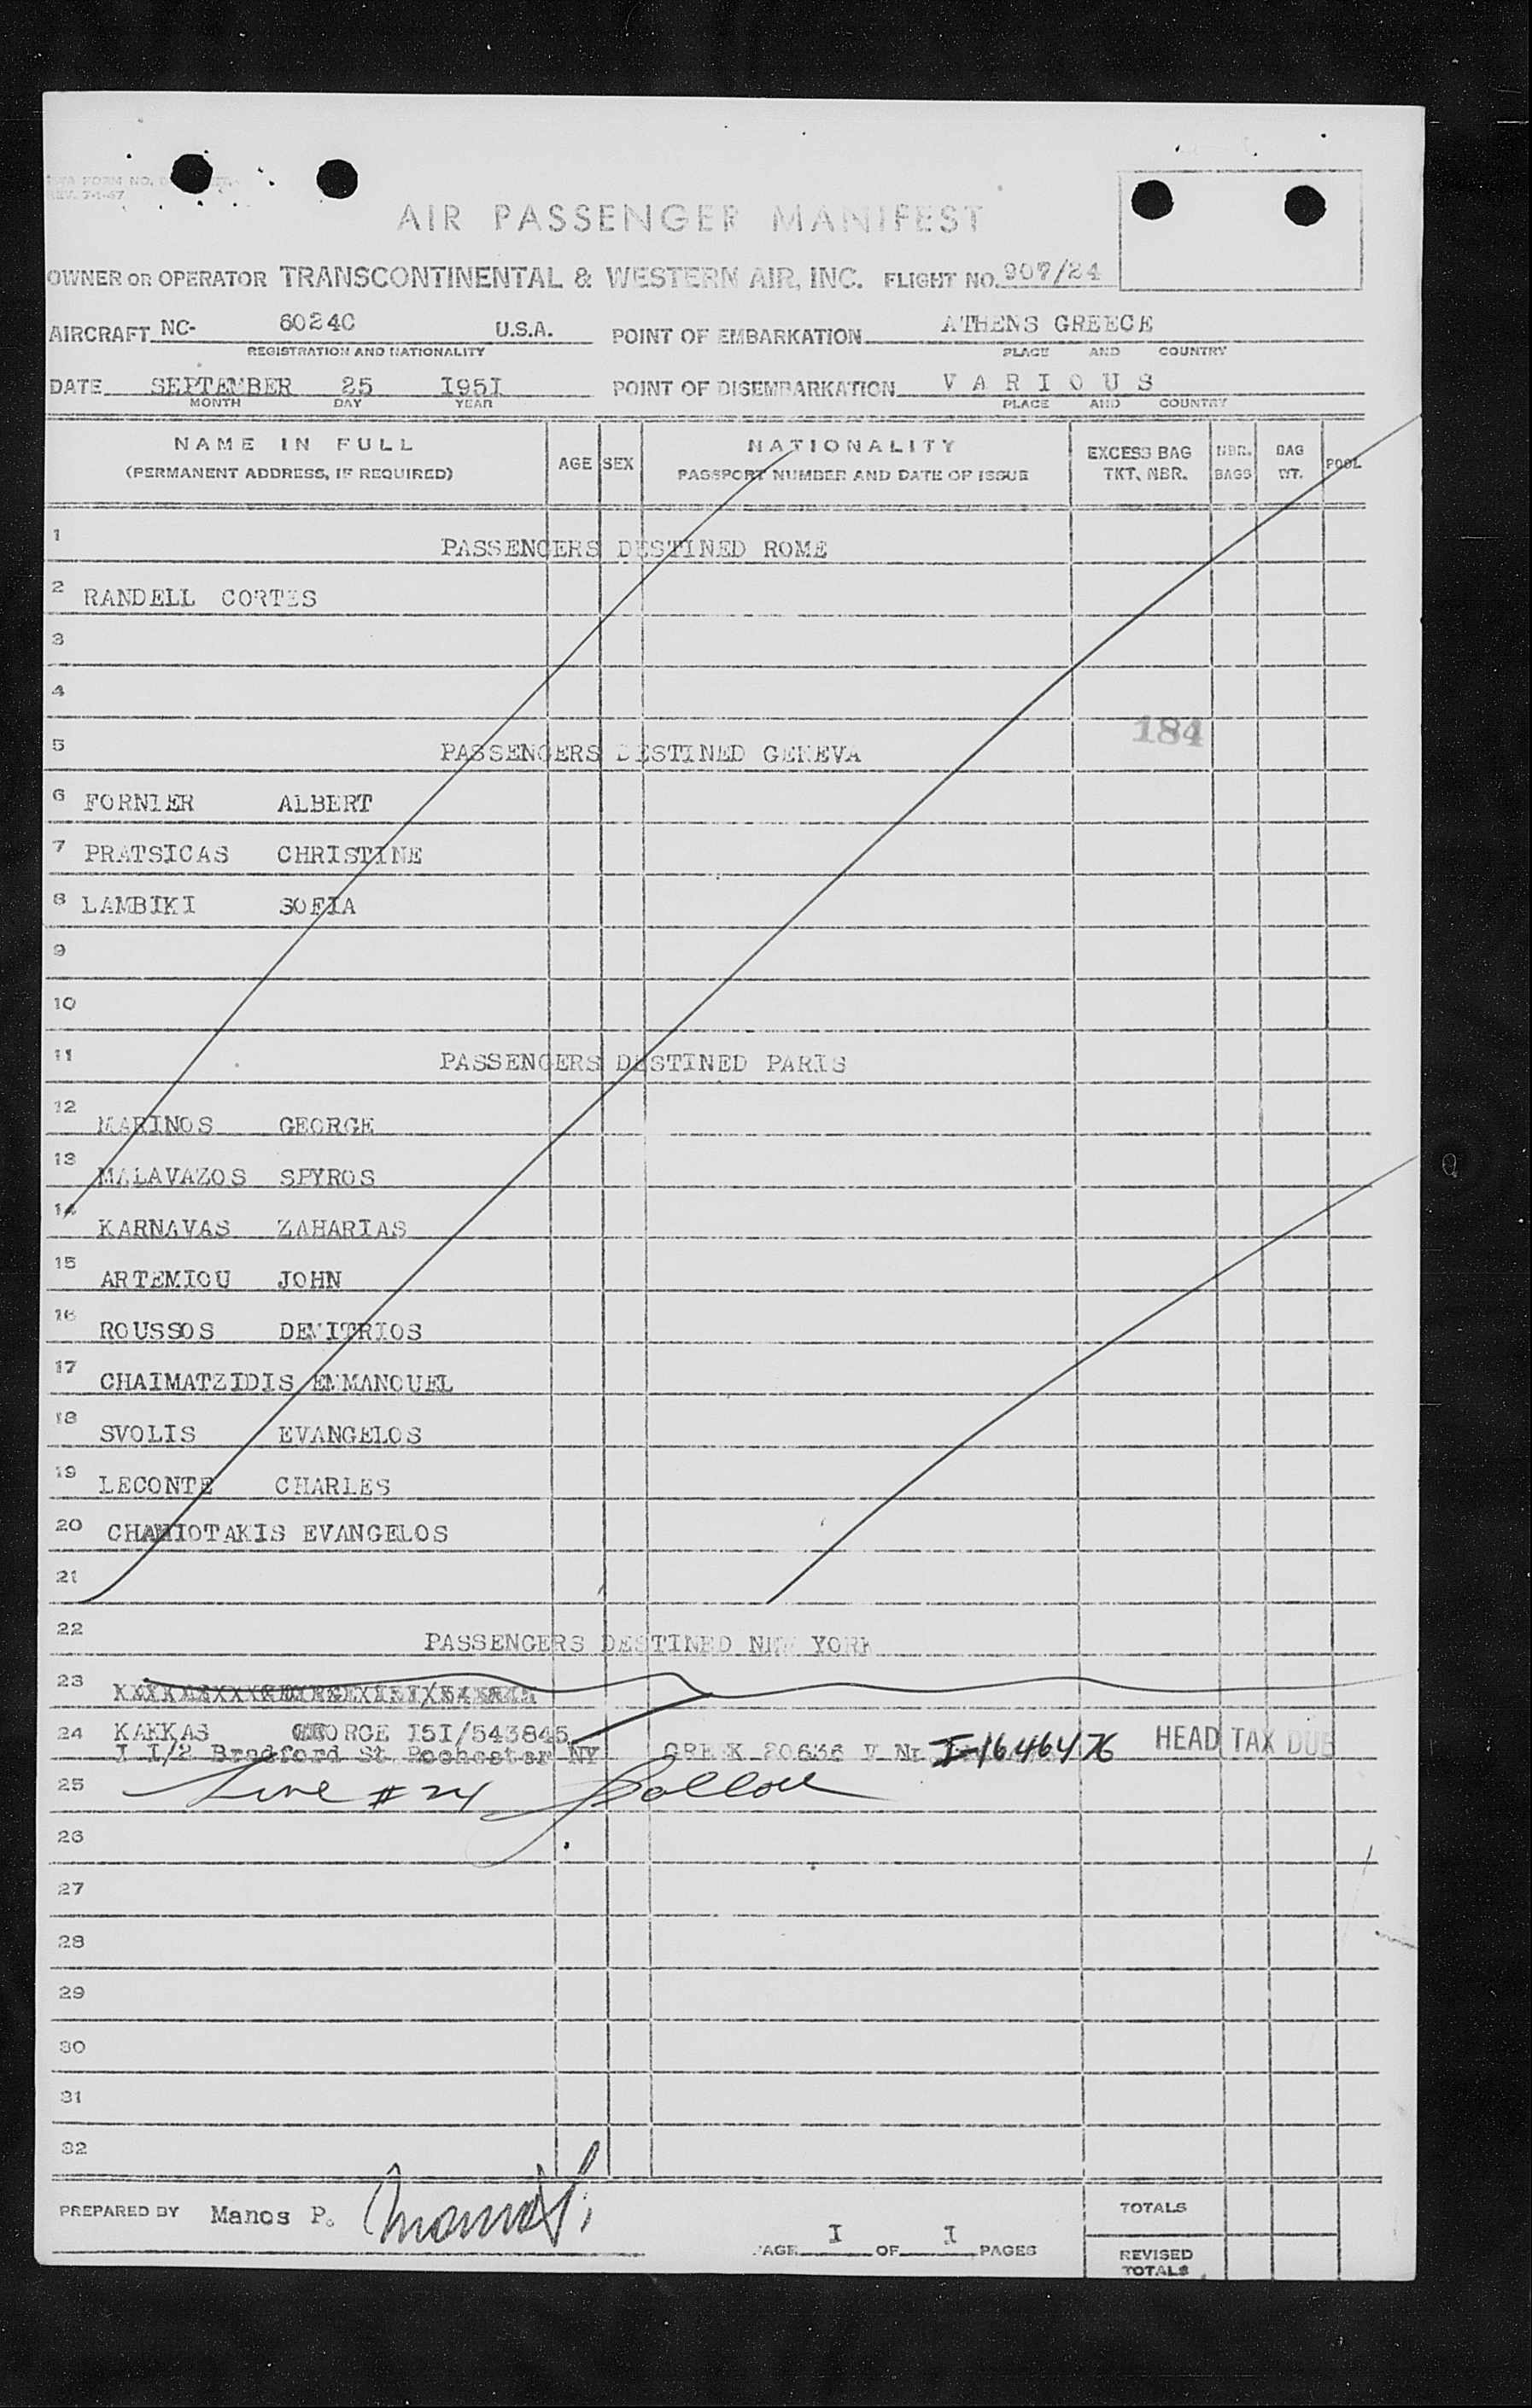 REV. 7-1-47
AIR PASSENGER MANIFEST
OWNER OR OPERATOR TRANSCONTINENTAL & WESTERN AIR, INC. FLIGHT NO. 907/24
AIRCRAFT NC- 6024C U.S.A. POINT OF EMBARKATION ATHENS GREECE
REGISTRATION AND NATIONALITY PLACE AND COUNTRY
DATE SEPTEMBER 25 I95I POINT OF DISEMBARKATION V A R I O U S
MONTH DAY YEAR PLACE AND COUNTRY
NAME IN FULL AGE SEX NATIONALITY EXCESS BAG NBR. BAG POOL
(PERMANENT ADDRESS, IF REQUIRED) PASSPORT NUMBER AND DATE OF ISSUE TKT. NBR. BAGS WT.
1 PASSENGERS DESTINED ROME
2 RANDELL CORTES
3
4
184
5 PASSENGERS DESTINED GENEVA
6 FORNIER ALBERT
7 PRATSICAS CHRISTINE
8 LAMBIKI SOFIA
9
10
11 PASSENGERS DESTINED PARIS
12 MARINOS GEORGE
13 MALAVAZOS SPYROS
14 KARNAVAS ZAHARIAS
15 ARTEMIOU JOHN
16 ROUSSOS DEMITRIOS
17 CHAIMATZIDIS EMMANOUEL
18 SVOLIS EVANGELOS
19 LECONTE CHARLES
20 CHANIOTAKIS EVANGELOS
21
22 PASSENGERS DESTINED NEW YORK
23
24 KAKKAS GEORGE I5I/543845
I I/2 Bradford St. Rochester NY GREEK 20636 V Nr I-1646476 HEAD TAX DUE
25 Line # 24
26
27
28
29
30
31
32
PREPARED BY Manos P. Manos P. TOTALS
PAGE I OF I PAGES
REVISED
TOTALS